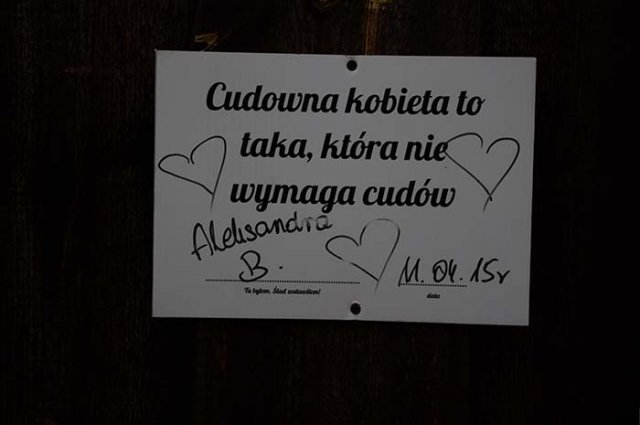 Cudowna kobieta to
taka, która nie
wymaga cudów
Aleksandra
B.
11.04.15r
Tu byłem. Ślad zostawiłem!
data